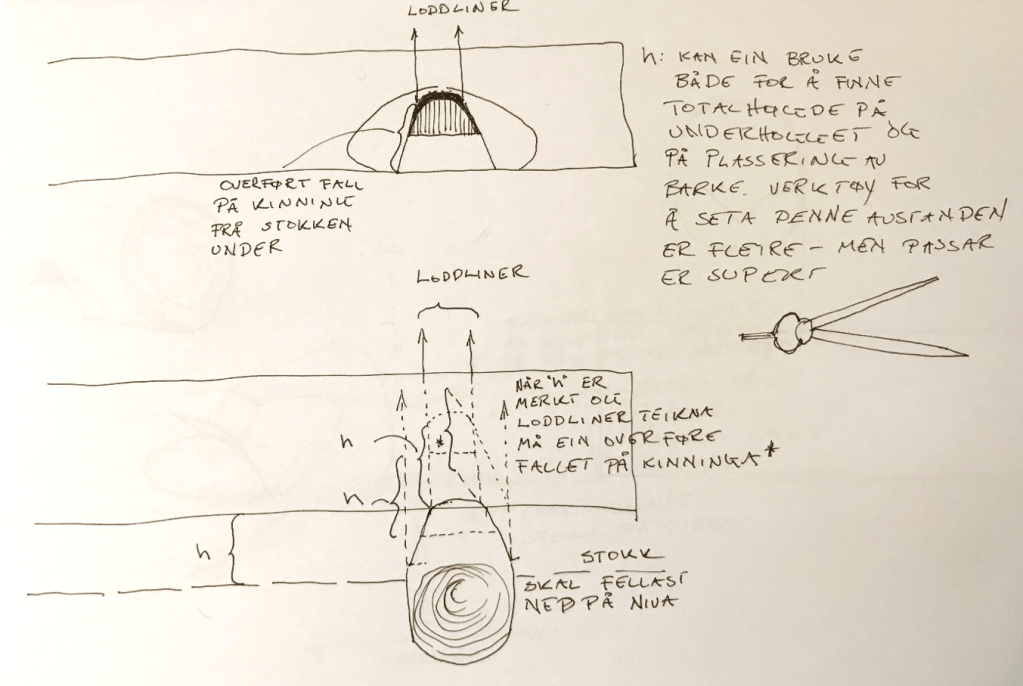 LODDLINER
h: KAN EIN BRUKE
BÅDE FOR Å FINNE
TOTALHØGDE PÅ
UNDERHOGGET OG
PÅ PLASSERING AV
BARKE. VERKTØY FOR
Å SETA DENNE AVSTANDEN
ER FLEIRE – MEN PASSAR
ER SUPERT
OVERFØRT FALL
PÅ KINNING
FRÅ STOKKEN
UNDER
LODDLINER
NÅR "h" ER
MERKT OG
LODDLINER TEIKNA
MÅ EIN OVERFØRE
FALLET PÅ KINNINGA*
h
*
h
h
STOKK
SKAL FELLAST
NED PÅ NIVA